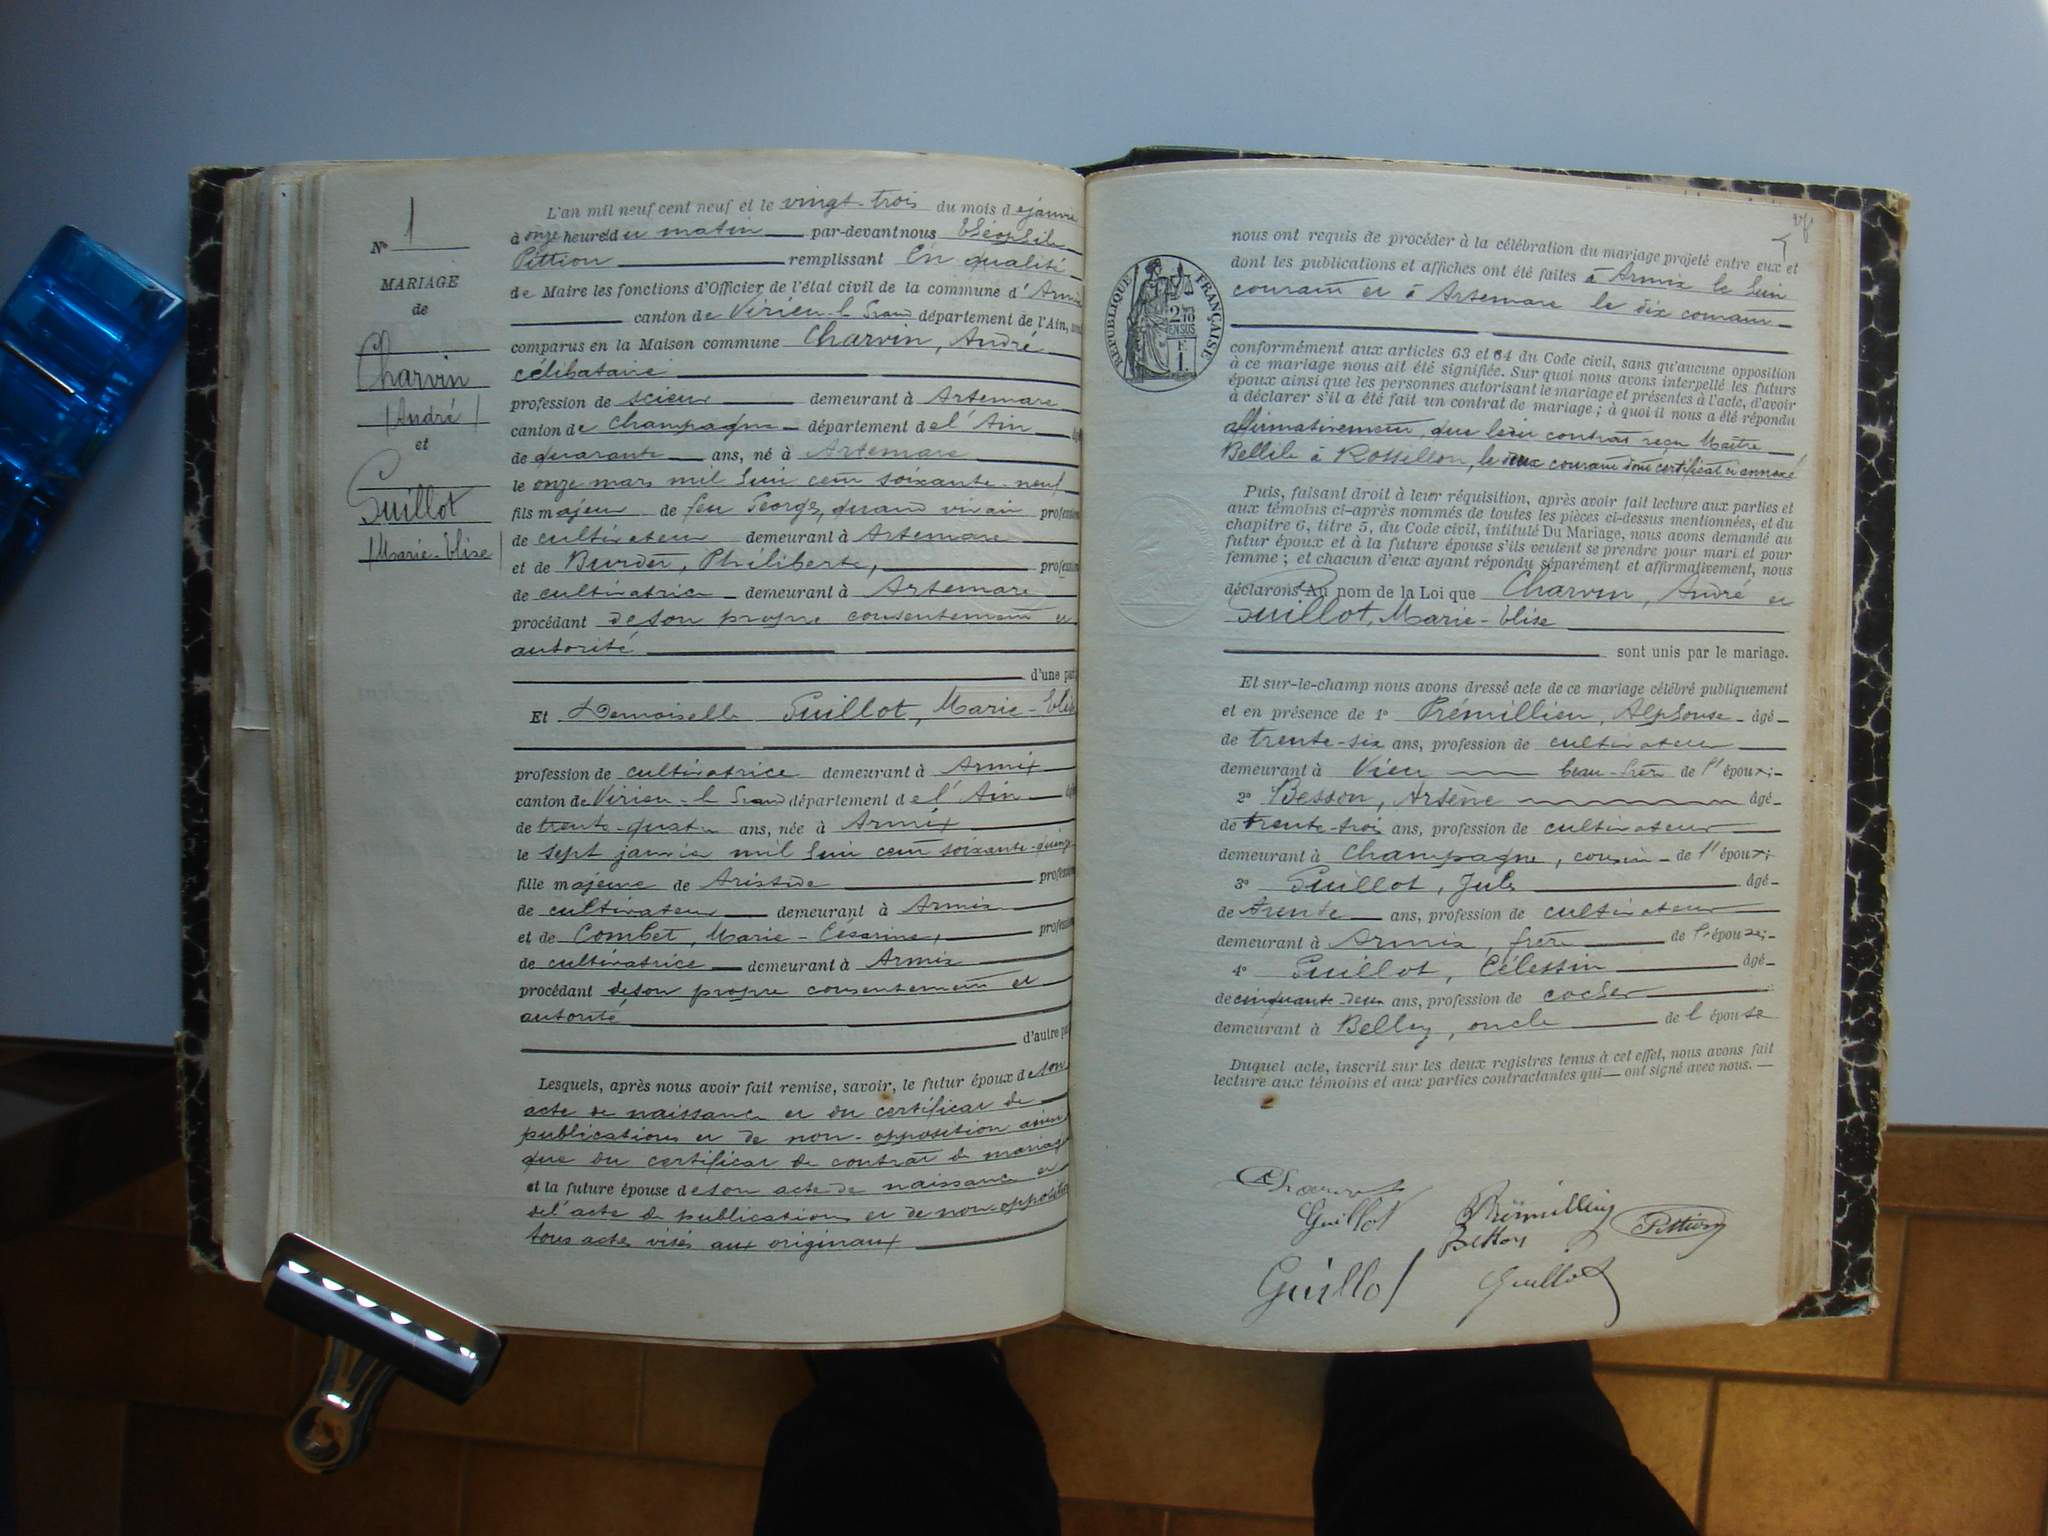 N° 1
MARIAGE
de
Charvin
(André)
et
Guillot
(Marie-Elise)
L'an mil neuf cent neuf et le vingt-trois du mois de janvie
à onze heures du matin par-devant nous Théophile
Pittion remplissant En qualité
de Maire les fonctions d'Officier de l'état civil de la commune d'Armix
canton de Virieu-le Grand département de l'Ain, sont
comparus en la Maison commune Charvin, André
célibataire
profession de scieur demeurant à Artemare
canton de Champagne département de l'Ain
de quarante ans, né à Artemare
le onze mars mil huit cent soixante-neuf
fils majeur de feu George, quand vivait profession
de cultivateur demeurant à Artemare
et de Burdet, Philiberte, profession
de cultivatrice demeurant à Artemare
procédant de son propre consentement et
autorité
d'une part
Et Demoiselle Guillot, Marie-Elise
profession de cultivatrice demeurant à Armix
canton de Virieu-le Grand département de l'Ain
de trente-quatre ans, née à Armix
le sept janvier mil huit cent soixante-quinze
fille majeure de Aristide profession
de cultivateur demeurant à Armix
et de Combet, Marie-Césarine, profession
de cultivatrice demeurant à Armix
procédant de son propre consentement et
autorité
d'autre part
Lesquels, après nous avoir fait remise, savoir, le futur époux de son
acte de naissance et du certificat de
publications et de non-opposition ainsi
que du certificat de contrat de mariage
et la future épouse de son acte de naissance et
de l'acte de publications et de non-opposition
tous actes visés aux originaux
nous ont requis de procéder à la célébration du mariage projeté entre eux et
dont les publications et affiches ont été faites à Armix le huit
courant et à Artemare le dix courant
RÉPUBLIQUE FRANÇAISE
2/10 EN SUS
F
1.
conformément aux articles 63 et 64 du Code civil, sans qu'aucune opposition
à ce mariage nous ait été signifiée. Sur quoi nous avons interpellé les futurs
époux ainsi que les personnes autorisant le mariage et présentes à l'acte, d'avoir
à déclarer s'il a été fait un contrat de mariage ; à quoi il nous a été répondu
affirmativement, que leur contrat reçu Maître
Bellile à Rossillon, le deux courant dont certificat ci annexé
Puis, faisant droit à leur réquisition, après avoir fait lecture aux parties et
aux témoins ci-après nommés de toutes les pièces ci-dessus mentionnées, et du
chapitre 6, titre 5, du Code civil, intitulé Du Mariage, nous avons demandé au
futur époux et à la future épouse s'ils veulent se prendre pour mari et pour
femme ; et chacun d'eux ayant répondu séparément et affirmativement, nous
déclarons Au nom de la Loi que Charvin, André et
Guillot, Marie-Elise
sont unis par le mariage.
Et sur-le-champ nous avons dressé acte de ce mariage célébré publiquement
et en présence de 1° Prémillieu, Alphonse âgé
de trente-six ans, profession de cultivateur
demeurant à Vieu beau-frère de l'époux;
2° Besson, Arsène âgé
de trente-trois ans, profession de cultivateur
demeurant à Champagne, cousin de l'époux;
3° Guillot, Jules âgé
de trente ans, profession de cultivateur
demeurant à Armix, frère de l'épouse;
4° Guillot, Célestin âgé
de cinquante-deux ans, profession de cocher
demeurant à Belley, oncle de l'épouse
Duquel acte, inscrit sur les deux registres tenus à cet effet, nous avons fait
lecture aux témoins et aux parties contractantes qui ont signé avec nous.
Guillot
Prémillieu
Pittion
Besson
Guillot
Guillot